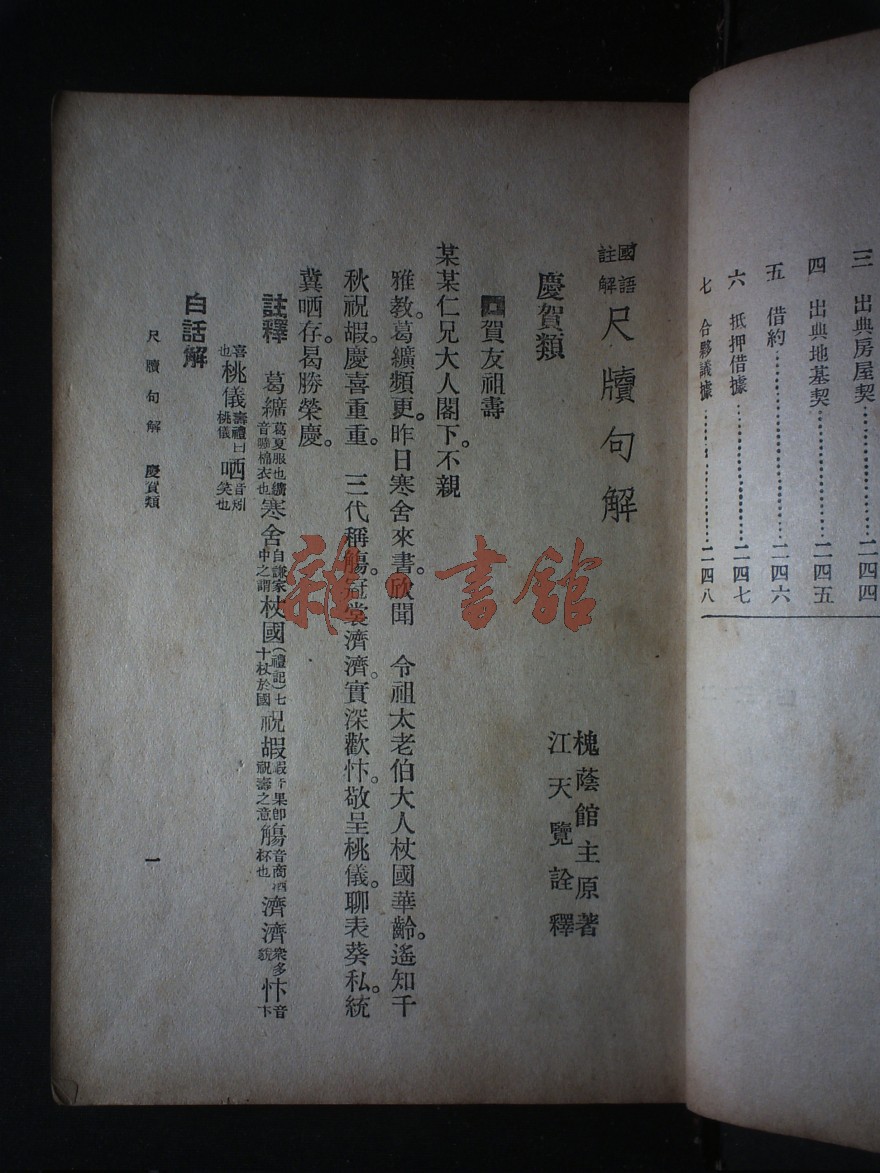 三　出典房屋契……………二四四
四　出典地基契……………二四五
五　借約……………二四六
六　抵押借據……………二四七
七　合夥議據……………二四八
國語註解尺牘句解
槐蔭館主原著
江天覽詮釋
慶賀類
賀友祖壽
某某仁兄大人閣下。不親
雅教。葛纊頻更。昨日寒舍來書。欣聞　令祖太老伯大人杖國華齡。遙知千
秋祝嘏。慶喜重重。　三代稱觴。冠裳濟濟。實深歡忭。敬呈桃儀。聊表葵私。統
冀哂存。曷勝榮慶。
註釋　葛纊葛夏服也纊音曠棉衣也寒舍自謙家中之謂杖國（禮記）七十杖於國祝嘏嘏音果卽祝壽之意觴音商酒杯也濟濟衆多貌忭音卞
喜也桃儀壽禮曰桃儀哂音矧笑也
白話解
尺牘句解　慶賀類
一
雜·書館